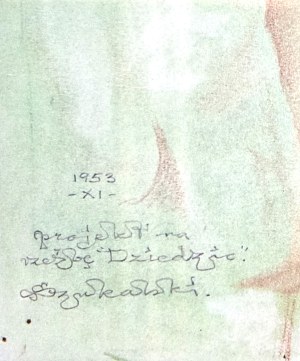 1953
-XI-
projekt na
rzeźbę "Dziedzic".
Szukalski.